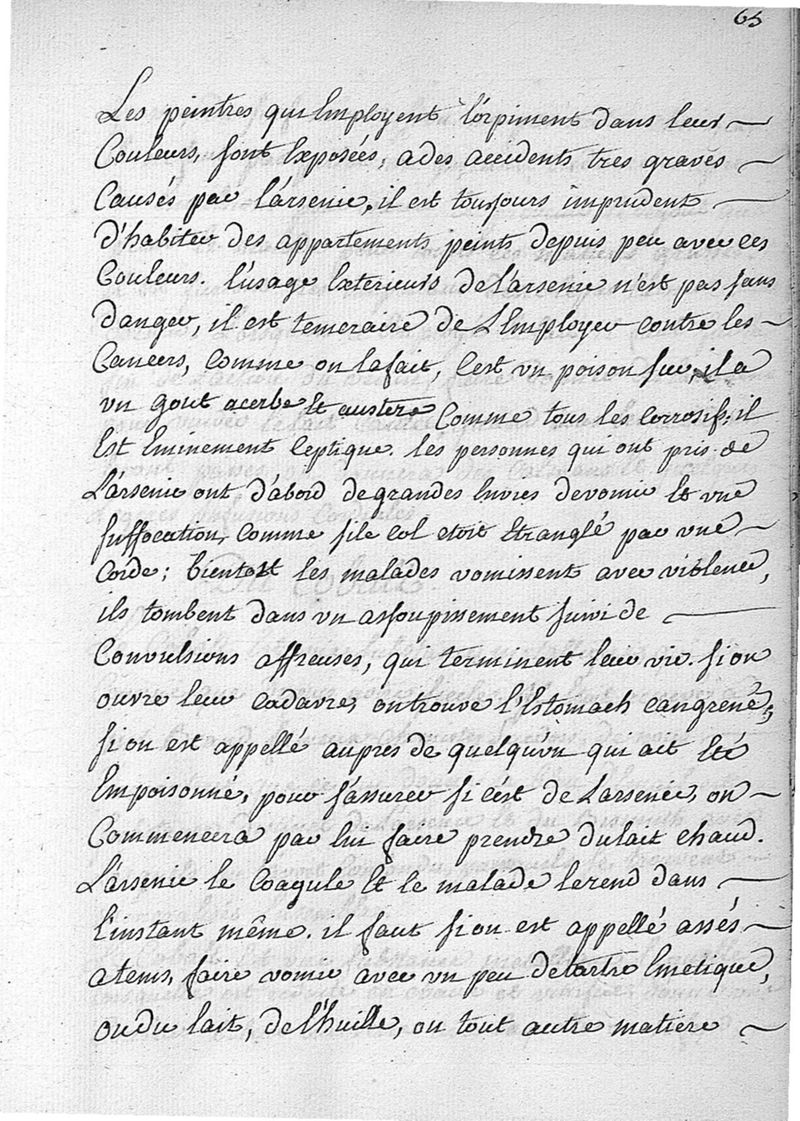 65
Les peintres qui Employent l'orpiment dans leurs
Couleurs, sont Exposées, a des accidents tres graves
Causés par l'arsenic, il est tousjours imprudent
d'habiter des appartements peints depuis peu avec ces
Couleurs. l'usage Exterieurs de l'arsenic n'est pas sans
danger, il est temeraire de L'Employer contre les
Cancers, comme on le fait, C'est un poison sur, il a
un gout acerbe Et austere Comme tous les Corrosifs, il
Est Eminement septique. les personnes qui ont pris de
L'arsenic ont d'abord de grandes Envies de vomir Et une
suffocation, comme si le col etoit Etranglé par une
Corde; bientost les malades vomissent avec violence,
ils tombent dans un assoupissement suivi de
Convulsions affreuses, qui terminent leur vie. si on
ouvre leur cadavre, on trouve l'Estomach cangrené,
si on est appellé aupres de quelqu'un qui ait Eté
Empoisonné, pour s'assurer si c'est de L'arsenic, on
Commencera par lui faire prendre du lait chaud.
L'arsenic le Coagule Et le malade le rend dans
l'instant même. il faut si on est appellé assés
a tems, faire vomir avec un peu de tartre Emetique,
ou du lait, de l'huille, ou tout autre matiere